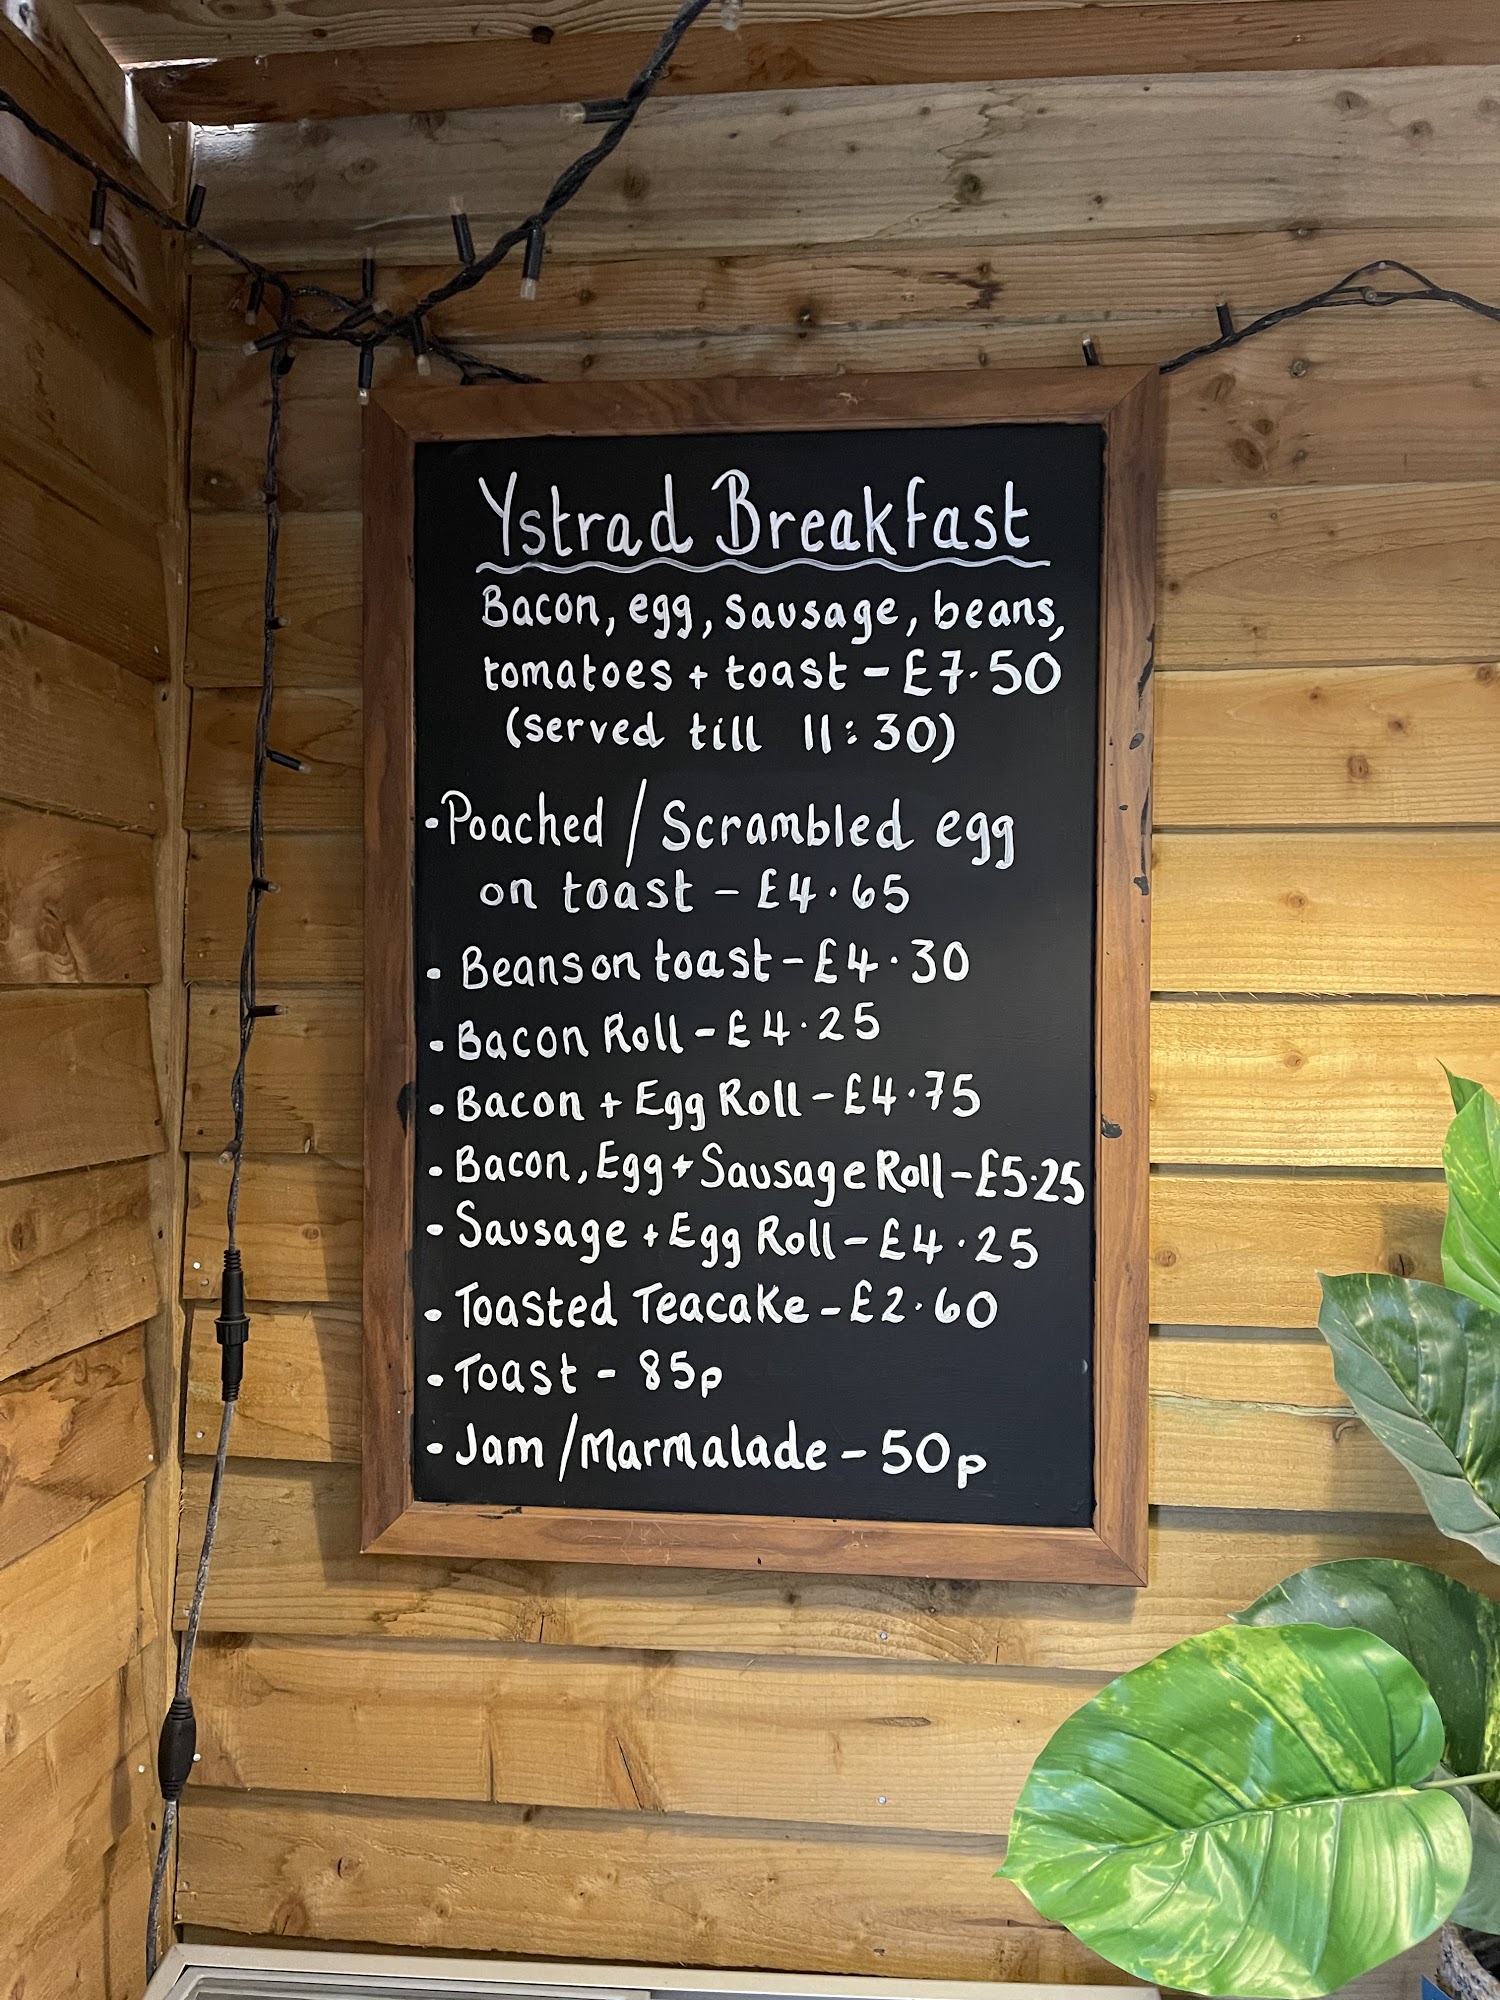 Ystrad Breakfast
Bacon, egg, sausage, beans,
tomatoes + toast - £7.50
(served till 11:30)
• Poached / Scrambled egg
on toast - £4.65
• Beans on toast - £4.30
• Bacon Roll - £4.25
• Bacon + Egg Roll - £4.75
• Bacon, Egg + Sausage Roll - £5.25
• Sausage + Egg Roll - £4.25
• Toasted Teacake - £2.60
• Toast - 85p
• Jam / Marmalade - 50p